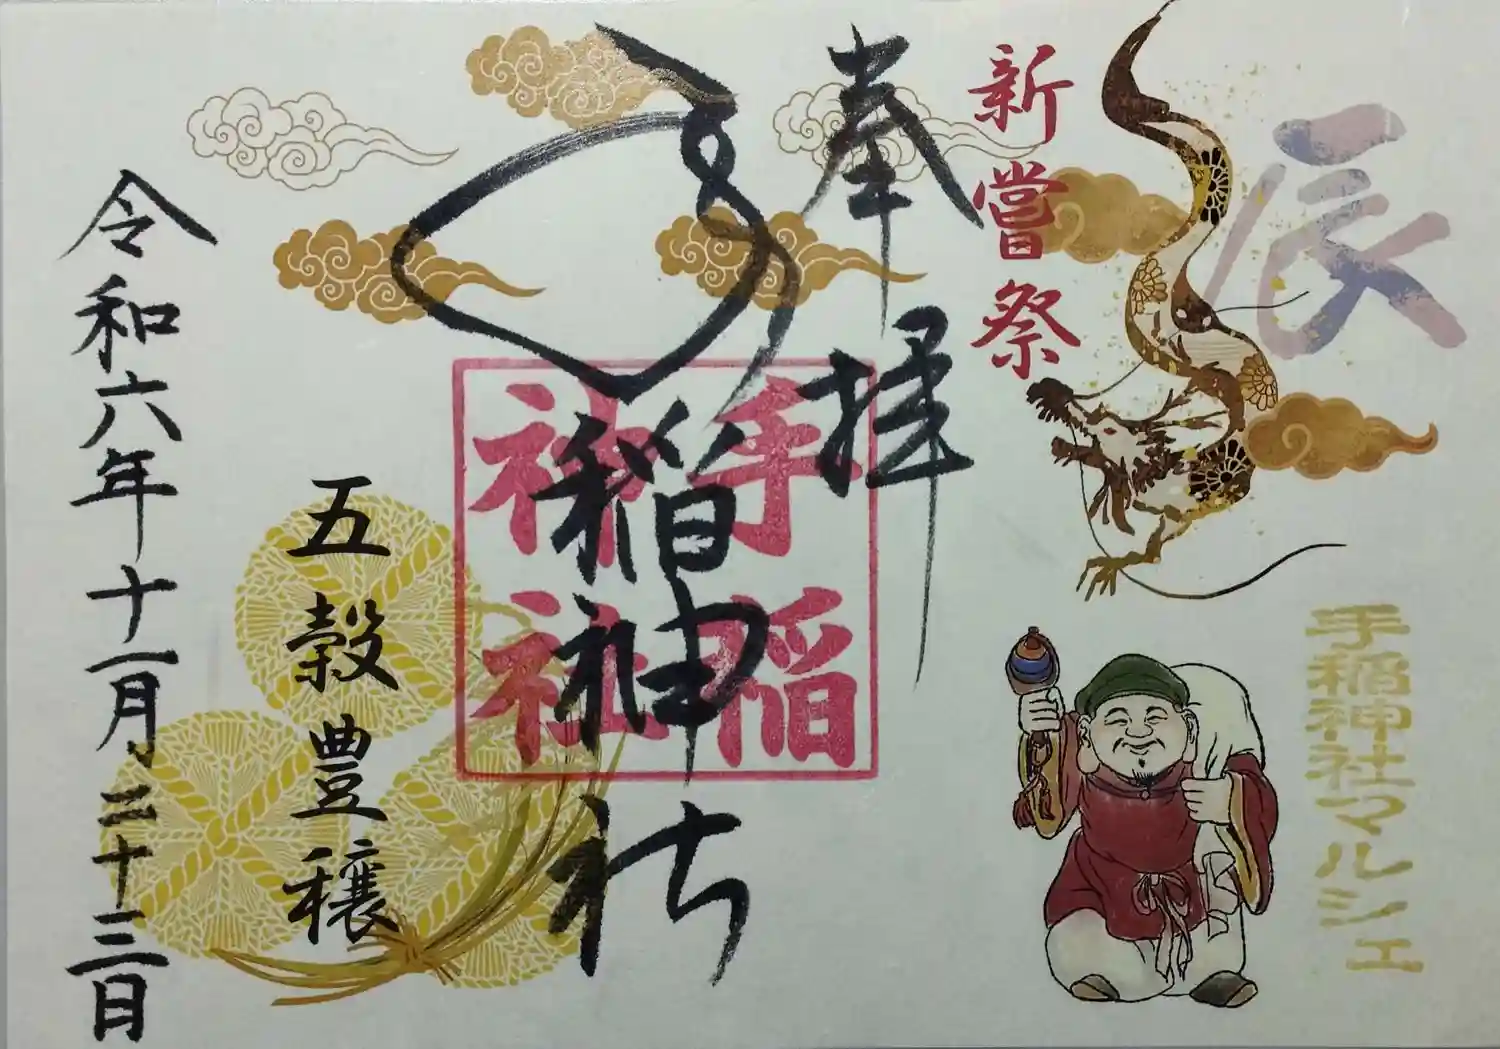 辰
手稲神社マルシェ
新嘗祭
奉拝
手稲神社
手稲
神社
五穀豊穣
令和六年十一月二十三日